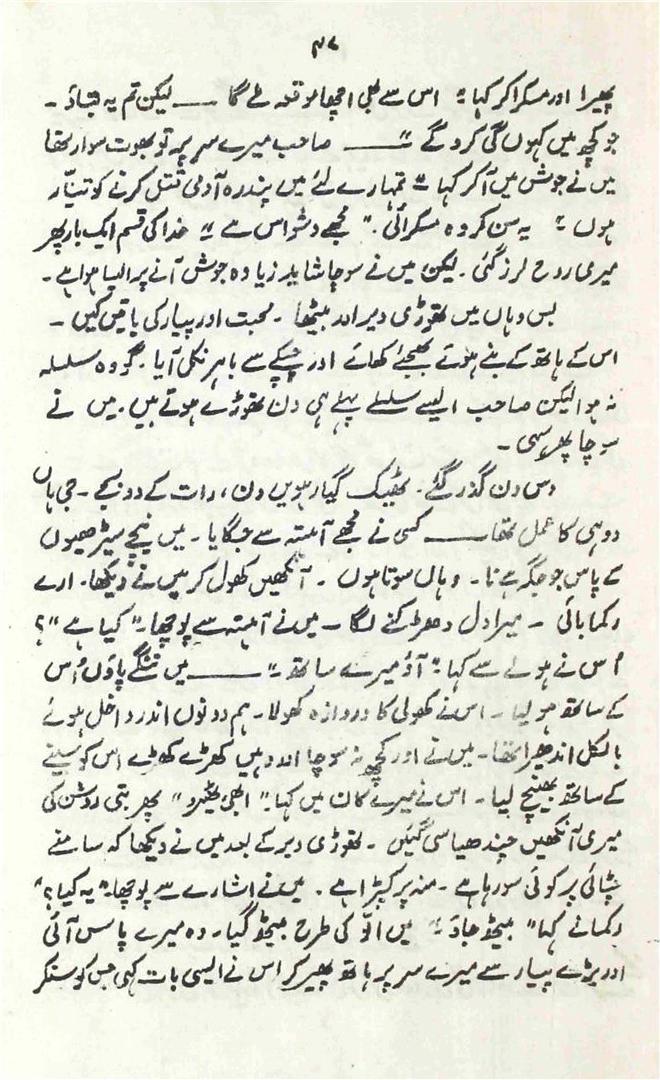 ۴۷
پھیرا اور مسکرا کر کہا "اس سے بھی اچھا موقعہ ملے گا ــــ لیکن تم یہ بتاؤ ۔
جو کچھ میں کہوں گی کرو گے" ــــ صاحب میرے سر پہ تو بھوت سوار تھا
میں نے جوش میں آ کر کہا "تمہارے لئے میں پندرہ آدمی قتل کرنے کو تیّار
ہوں" یہ سن کر وہ مسکرائی ۔ "مجھے وشواس ہے" خدا کی قسم ایک بار پھر
میری روح لرز گئی ۔ لیکن میں نے سوچا شاید زیادہ جوش آنے پر ایسا ہوا ہے ۔
بس وہاں میں تھوڑی دیر اور بیٹھا ۔ محبت اور پیار کی باتیں کیں ۔
اس کے ہاتھ کے بنے ہوئے بھجیئے کھائے اور چپکے سے باہر نکل آیا ۔ گو وہ سلسلہ
نہ ہوا لیکن صاحب ایسے سلسلے پہلے ہی دن تھوڑے ہوتے ہیں ۔ میں نے
سوچا پھر سہی ۔
دس دن گذر گئے ۔ ٹھیک گیارہویں دن، رات کے دو بجے ۔ جی ہاں
دو ہی کا عمل تھا ــــ کسی نے مجھے آہستہ سے جگایا ۔ میں نیچے سیڑھیوں
کے پاس جو جگہ ہے نا ۔ وہاں سوتا ہوں ۔ آنکھیں کھول کر میں نے دیکھا ۔ ارے
رکما بائی ۔ میرا دل دھڑکنے لگا ۔ میں نے آہستہ سے پوچھا "کیا ہے"؟
اُس نے ہولے سے کہا "آؤ میرے ساتھ" ــــ میں ننگے پاؤں اُس
کے ساتھ ہو لیا ۔ اس نے کھولی کا دروازہ کھولا ۔ ہم دونوں اندر داخل ہوئے
بالکل اندھیرا تھا ۔ میں نے اور کچھ نہ سوچا اور وہیں کھڑے کھڑے اس کو سینے
کے ساتھ بھینچ لیا ۔ اس نے میرے کان میں کہا "ابھی ٹھیرو" پھر بتی روشن کی
میری آنکھیں چندھیا سی گئیں ۔ تھوڑی دیر کے بعد میں نے دیکھا کہ سامنے
چٹائی پر کوئی سو رہا ہے ۔ منہ پر کپڑا ہے ۔ میں نے اشارے سے پوچھا "یہ کیا؟"
رکما نے کہا "بیٹھ جاؤ" میں الّو کی طرح بیٹھ گیا ۔ وہ میرے پاس آئی
اور بڑے پیار سے میرے سر پر ہاتھ پھیر کر اس نے ایسی بات کہی جس کو سنکر